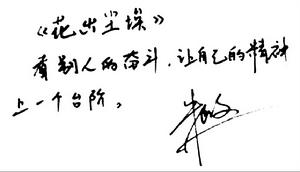 《花出尘埃》
看别人的奋斗，让自己的精神
上一个台阶。